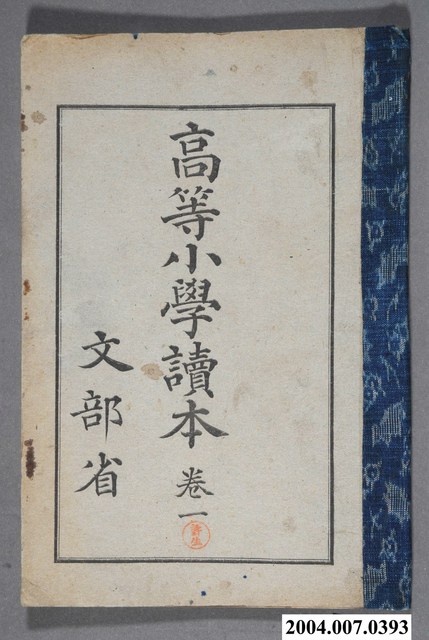 高等小學讀本 卷一
文部省
2004.007.0393